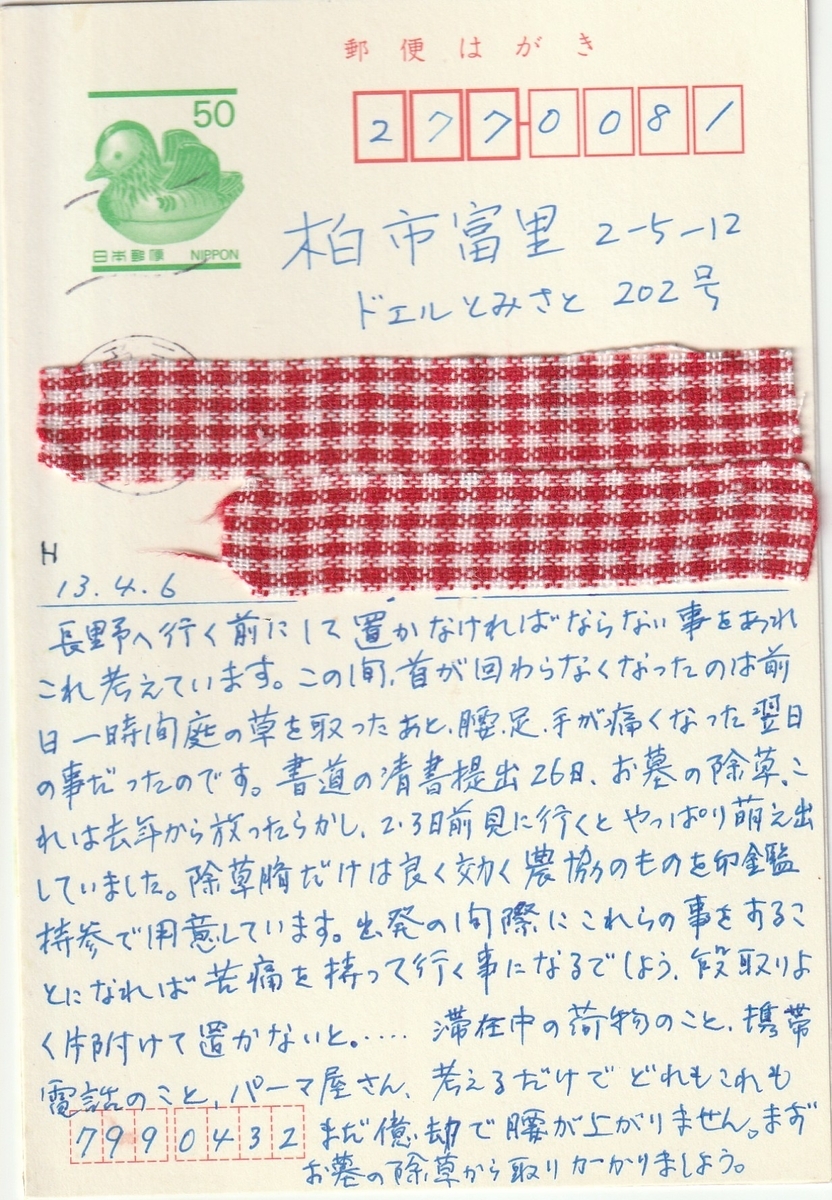 郵便はがき
50
日本郵便 NIPPON
277-0081
柏市富里 2-5-12
ドエルとみさと 202号
H
13.4.6
長野へ行く前にして置かなければならない事をあれ
これ考えています。この間、首が回わらなくなったのは前
日一時間庭の草を取ったあと、腰、足、手が痛くなった翌日
の事だったのです。書道の清書提出26日、お墓の除草、こ
れは去年から放ったらかし、2・3日前見に行くとやっぱり萌え出
していました。除草剤だけは良く効く農協のものを印鑑
持参で用意しています。出発の間際にこれらの事をするこ
とになれば苦痛を持って行く事になるでしょう、段取りよ
く片附けて置かないと。‥‥ 滞在中の荷物のこと、携帯
電話のこと、パーマ屋さん、考えるだけでどれもこれも
まだ億劫で腰が上がりません。まず
お墓の除草から取りかかりましょう。
7990432